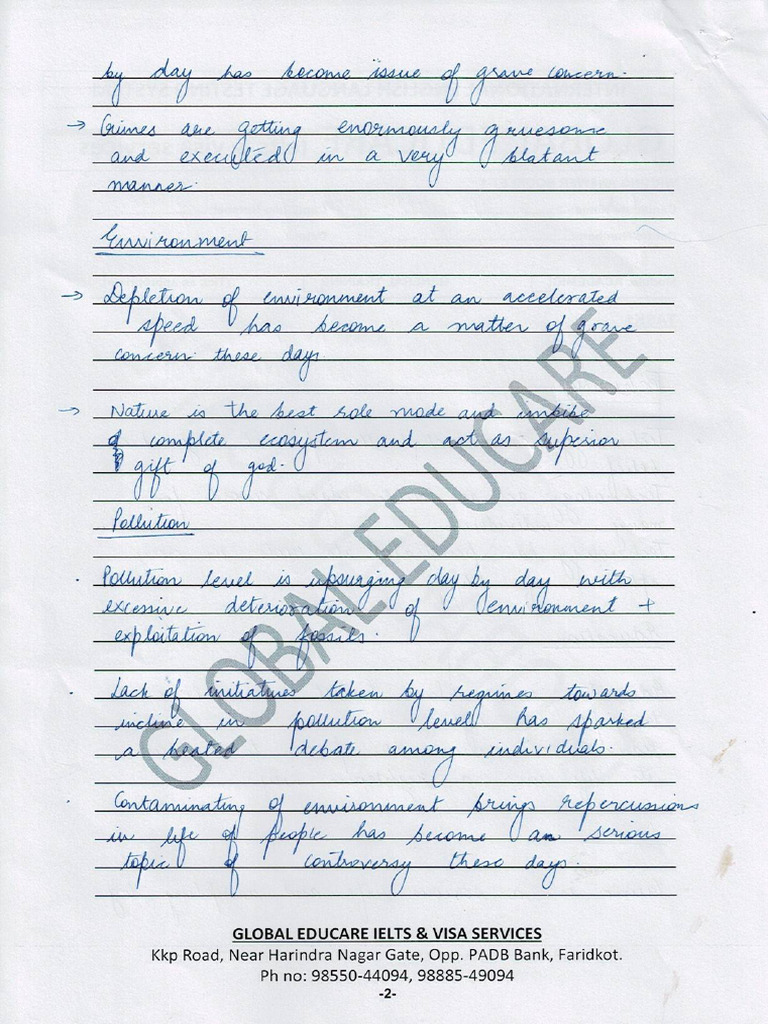 by day has become issue of grave concern.
→ Crimes are getting enormously gruesome
and executed in a very blatant
manner.
Environment
→ Depletion of environment at an accelerated
speed has become a matter of grave
concern these days
→ Nature is the best role mode and imbibe
of complete ecosystem and act as superior
gift of god.
Pollution
. Pollution level is upsurging day by day with
excessive deterioration of environment +
exploitation of fossils.
. Lack of initiatives taken by regimes towards
incline in pollution level has sparked
a heated debate among individuals.
. Contaminating of environment brings repercussions
in life of people has become an serious
topic of controversy these days.
GLOBAL EDUCARE
GLOBAL EDUCARE IELTS & VISA SERVICES
Kkp Road, Near Harindra Nagar Gate, Opp. PADB Bank, Faridkot.
Ph no: 98550-44094, 98885-49094
-2-